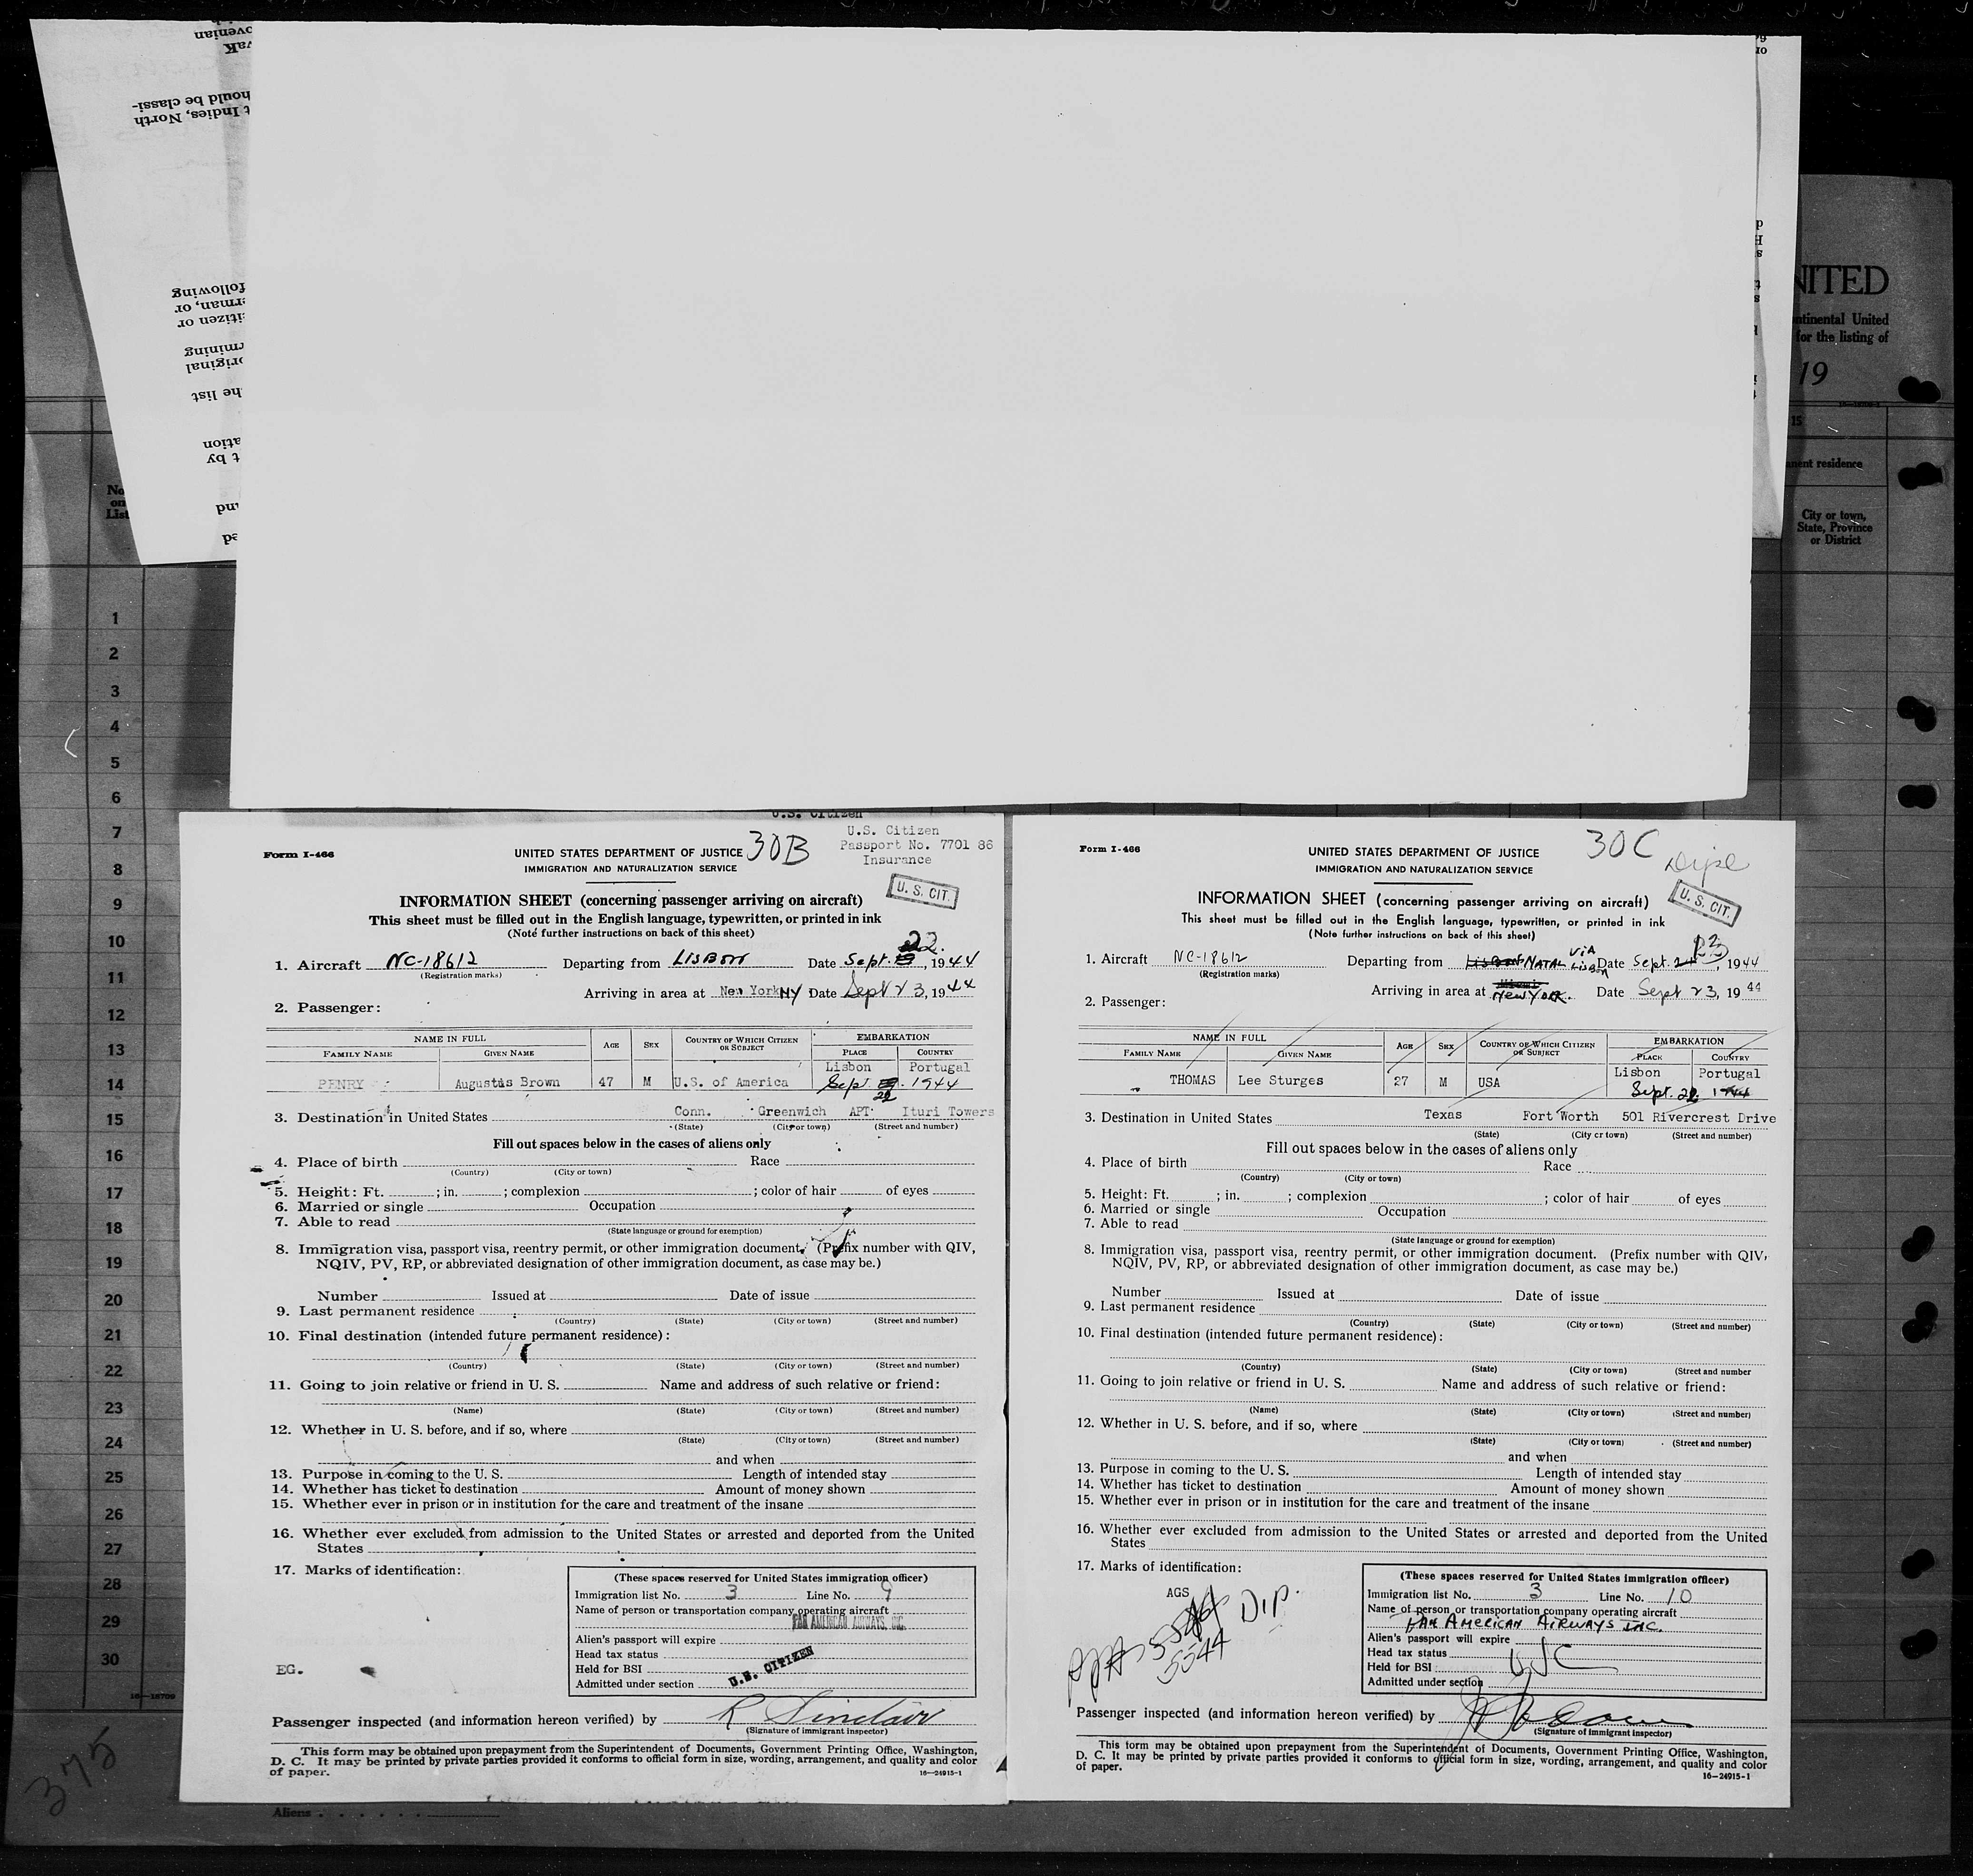 NITED
ntinental United
for the listing of
19
15
nent residence
City or town,
State, Province
or District
No
on
List
1
2
3
4
5
6
7
8
9
10
11
12
13
14
15
16
17
18
19
20
21
22
23
24
25
26
27
28
29
30
375
Aliens
U.S. Citizen
U.S. Citizen
Passport No. 7701 86
Insurance
30B
Form I-466
UNITED STATES DEPARTMENT OF JUSTICE
IMMIGRATION AND NATURALIZATION SERVICE
U. S. CIT.
INFORMATION SHEET (concerning passenger arriving on aircraft)
This sheet must be filled out in the English language, typewritten, or printed in ink
(Note further instructions on back of this sheet)
1. Aircraft NC-18612 Departing from LISBON Date Sept. 22, 1944
(Registration marks)
Arriving in area at New York NY Date Sept 23, 1944
2. Passenger:
NAME IN FULL AGE SEX COUNTRY OF WHICH CITIZEN OR SUBJECT EMBARKATION
FAMILY NAME GIVEN NAME PLACE COUNTRY
Lisbon Portugal
PENRY Augustus Brown 47 M U.S. of America Sept. 22 1944
3. Destination in United States Conn. Greenwich APT Ituri Towers
(State) (City or town) (Street and number)
Fill out spaces below in the cases of aliens only
4. Place of birth Race
(Country) (City or town)
5. Height: Ft. ; in. ; complexion ; color of hair of eyes
6. Married or single Occupation
7. Able to read
(State language or ground for exemption)
8. Immigration visa, passport visa, reentry permit, or other immigration document. (Prefix number with QIV,
NQIV, PV, RP, or abbreviated designation of other immigration document, as case may be.)
Number Issued at Date of issue
9. Last permanent residence
(Country) (State) (City or town) (Street and number)
10. Final destination (intended future permanent residence):
(Country) (State) (City or town) (Street and number)
11. Going to join relative or friend in U. S. Name and address of such relative or friend:
(Name) (State) (City or town) (Street and number)
12. Whether in U. S. before, and if so, where
(State) (City or town) (Street and number)
and when
13. Purpose in coming to the U. S. Length of intended stay
14. Whether has ticket to destination Amount of money shown
15. Whether ever in prison or in institution for the care and treatment of the insane
16. Whether ever excluded from admission to the United States or arrested and deported from the United
States
17. Marks of identification:
(These spaces reserved for United States immigration officer)
Immigration list No. 3 Line No. 9
Name of person or transportation company operating aircraft
PAN AMERICAN AIRWAYS, INC.
Alien's passport will expire
Head tax status
Held for BSI
Admitted under section
U.S. CITIZEN
EG.
16-18709
Passenger inspected (and information hereon verified) by R Sinclair
(Signature of immigrant inspector)
This form may be obtained upon prepayment from the Superintendent of Documents, Government Printing Office, Washington,
D. C. It may be printed by private parties provided it conforms to official form in size, wording, arrangement, and quality and color
of paper.
16—24915-1
30C
Form I-466
UNITED STATES DEPARTMENT OF JUSTICE
IMMIGRATION AND NATURALIZATION SERVICE
U. S. CIT.
INFORMATION SHEET (concerning passenger arriving on aircraft)
This sheet must be filled out in the English language, typewritten, or printed in ink
(Note further instructions on back of this sheet)
1. Aircraft NC-18612 Departing from NATAL VIA LISBON Date Sept. 23, 1944
(Registration marks)
Arriving in area at New York. Date Sept 23, 1944
2. Passenger:
NAME IN FULL AGE SEX COUNTRY OF WHICH CITIZEN OR SUBJECT EMBARKATION
FAMILY NAME GIVEN NAME PLACE COUNTRY
Lisbon Portugal
THOMAS Lee Sturges 27 M USA Sept. 22 1944
3. Destination in United States Texas Fort Worth 501 Rivercrest Drive
(State) (City or town) (Street and number)
Fill out spaces below in the cases of aliens only
4. Place of birth Race
(Country) (City or town)
5. Height: Ft. ; in. ; complexion ; color of hair of eyes
6. Married or single Occupation
7. Able to read
(State language or ground for exemption)
8. Immigration visa, passport visa, reentry permit, or other immigration document. (Prefix number with QIV,
NQIV, PV, RP, or abbreviated designation of other immigration document, as case may be.)
Number Issued at Date of issue
9. Last permanent residence
(Country) (State) (City or town) (Street and number)
10. Final destination (intended future permanent residence):
(Country) (State) (City or town) (Street and number
11. Going to join relative or friend in U. S. Name and address of such relative or friend:
(Name) (State) (City or town) (Street and number)
12. Whether in U. S. before, and if so, where
(State) (City or town) (Street and number)
and when
13. Purpose in coming to the U. S. Length of intended stay
14. Whether has ticket to destination Amount of money shown
15. Whether ever in prison or in institution for the care and treatment of the insane
16. Whether ever excluded from admission to the United States or arrested and deported from the United
States
17. Marks of identification:
AGS
Dip.
5544
(These spaces reserved for United States immigration officer)
Immigration list No. 3 Line No. 10
Name of person or transportation company operating aircraft
PAN AMERICAN AIRWAYS INC.
Alien's passport will expire
Head tax status USC
Held for BSI
Admitted under section
Passenger inspected (and information hereon verified) by
(Signature of immigrant inspector)
This form may be obtained upon prepayment from the Superintendent of Documents, Government Printing Office, Washington,
D. C. It may be printed by private parties provided it conforms to official form in size, wording, arrangement, and quality and color
of paper.
16—24915-1